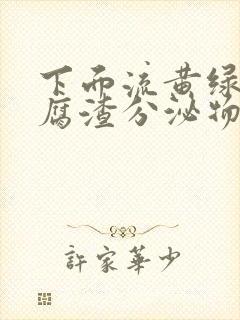 下面流黄绿
腐渣分泌物
許家華少